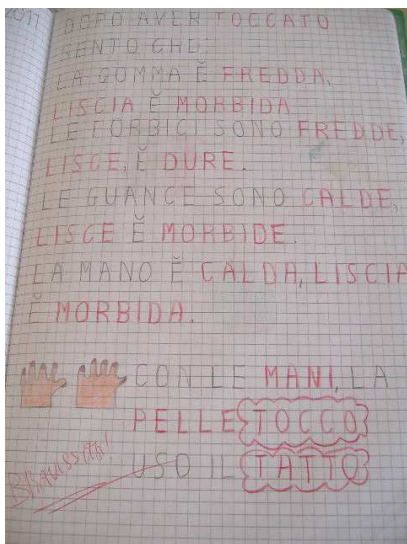 2017
DOPO AVER TOCCATO
SENTO CHE:
LA GOMMA È FREDDA,
LISCIA E MORBIDA
LE FORBICI SONO FREDDE,
LISCE, E DURE.
LE GUANCE SONO CALDE,
LISCE E MORBIDE.
LA MANO È CALDA, LISCIA
E MORBIDA.
CON LE MANI, LA
PELLE TOCCO
USO IL TATTO
BRAVISSIMA!